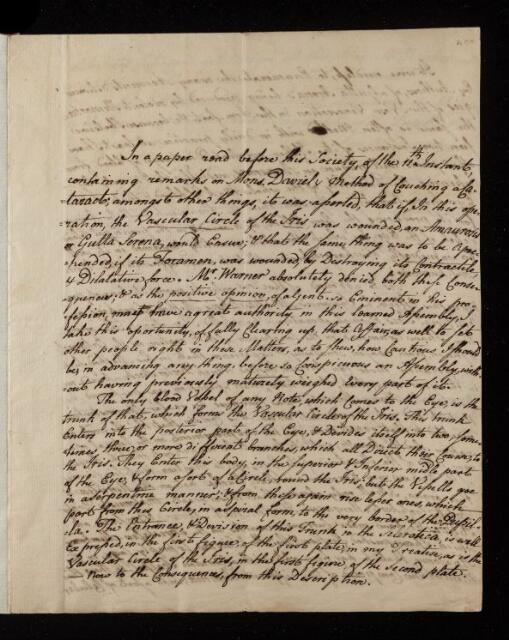 In a paper read before this Society, of the 11th Instant,
containing remarks on Mons. Daviel's Method of Couching a Ca-
taract; amongst other things, it was aserted, that if in this ope-
ration, the Vascular Circle of the Iris was wounded an Amaurosis
or Gutta Serena, would Ensue; & that the same thing was to be Apre
hended, if its Foramen, was wounded, by Distroying its Contractile,
& Dilatative force. Mr. Warner absolutely denied, both these Conse
quences; & as the positive opinion, of a Gent. so Eminent in his pro
fession, must have a great authority, in this learned Assembly, I
take this oportunity, of fully Clearing up, that Affair; as well to set
other people right in these Matters, as to shew, how Cautious I should
be, in advancing any thing, before so Conspicuous an Assembly, with
out having previously maturely weighed Every part of it.
The only blood Vessel of any Note, which comes to the Eye, is the
trunk of that, which forms the Vascular Circle of the Iris. This trunk
Enters into the posterior part of the Eye, & Devides itself into two, some
times, three, or more different branches, which all Direct their Course, to
the Iris. They Enter this body, in the Superior & Inferior middle part
of the Eye, & form a sort of a Circle, round the Iris; but the Vessells goe
in a serpentine manner; & from these again rise lesser ones, which
part from this Circle, in a spiral form, to the very border of the Pupil
la. The Entrance, & Devision of this Trunk in the Sclerotica, is well
Expressed, in the first figure of the first plate, in my Treatise, as is the
Vascular Circle of the Iris, in the first figure, of the Second plate.
Now to the Consequences, from this Description.